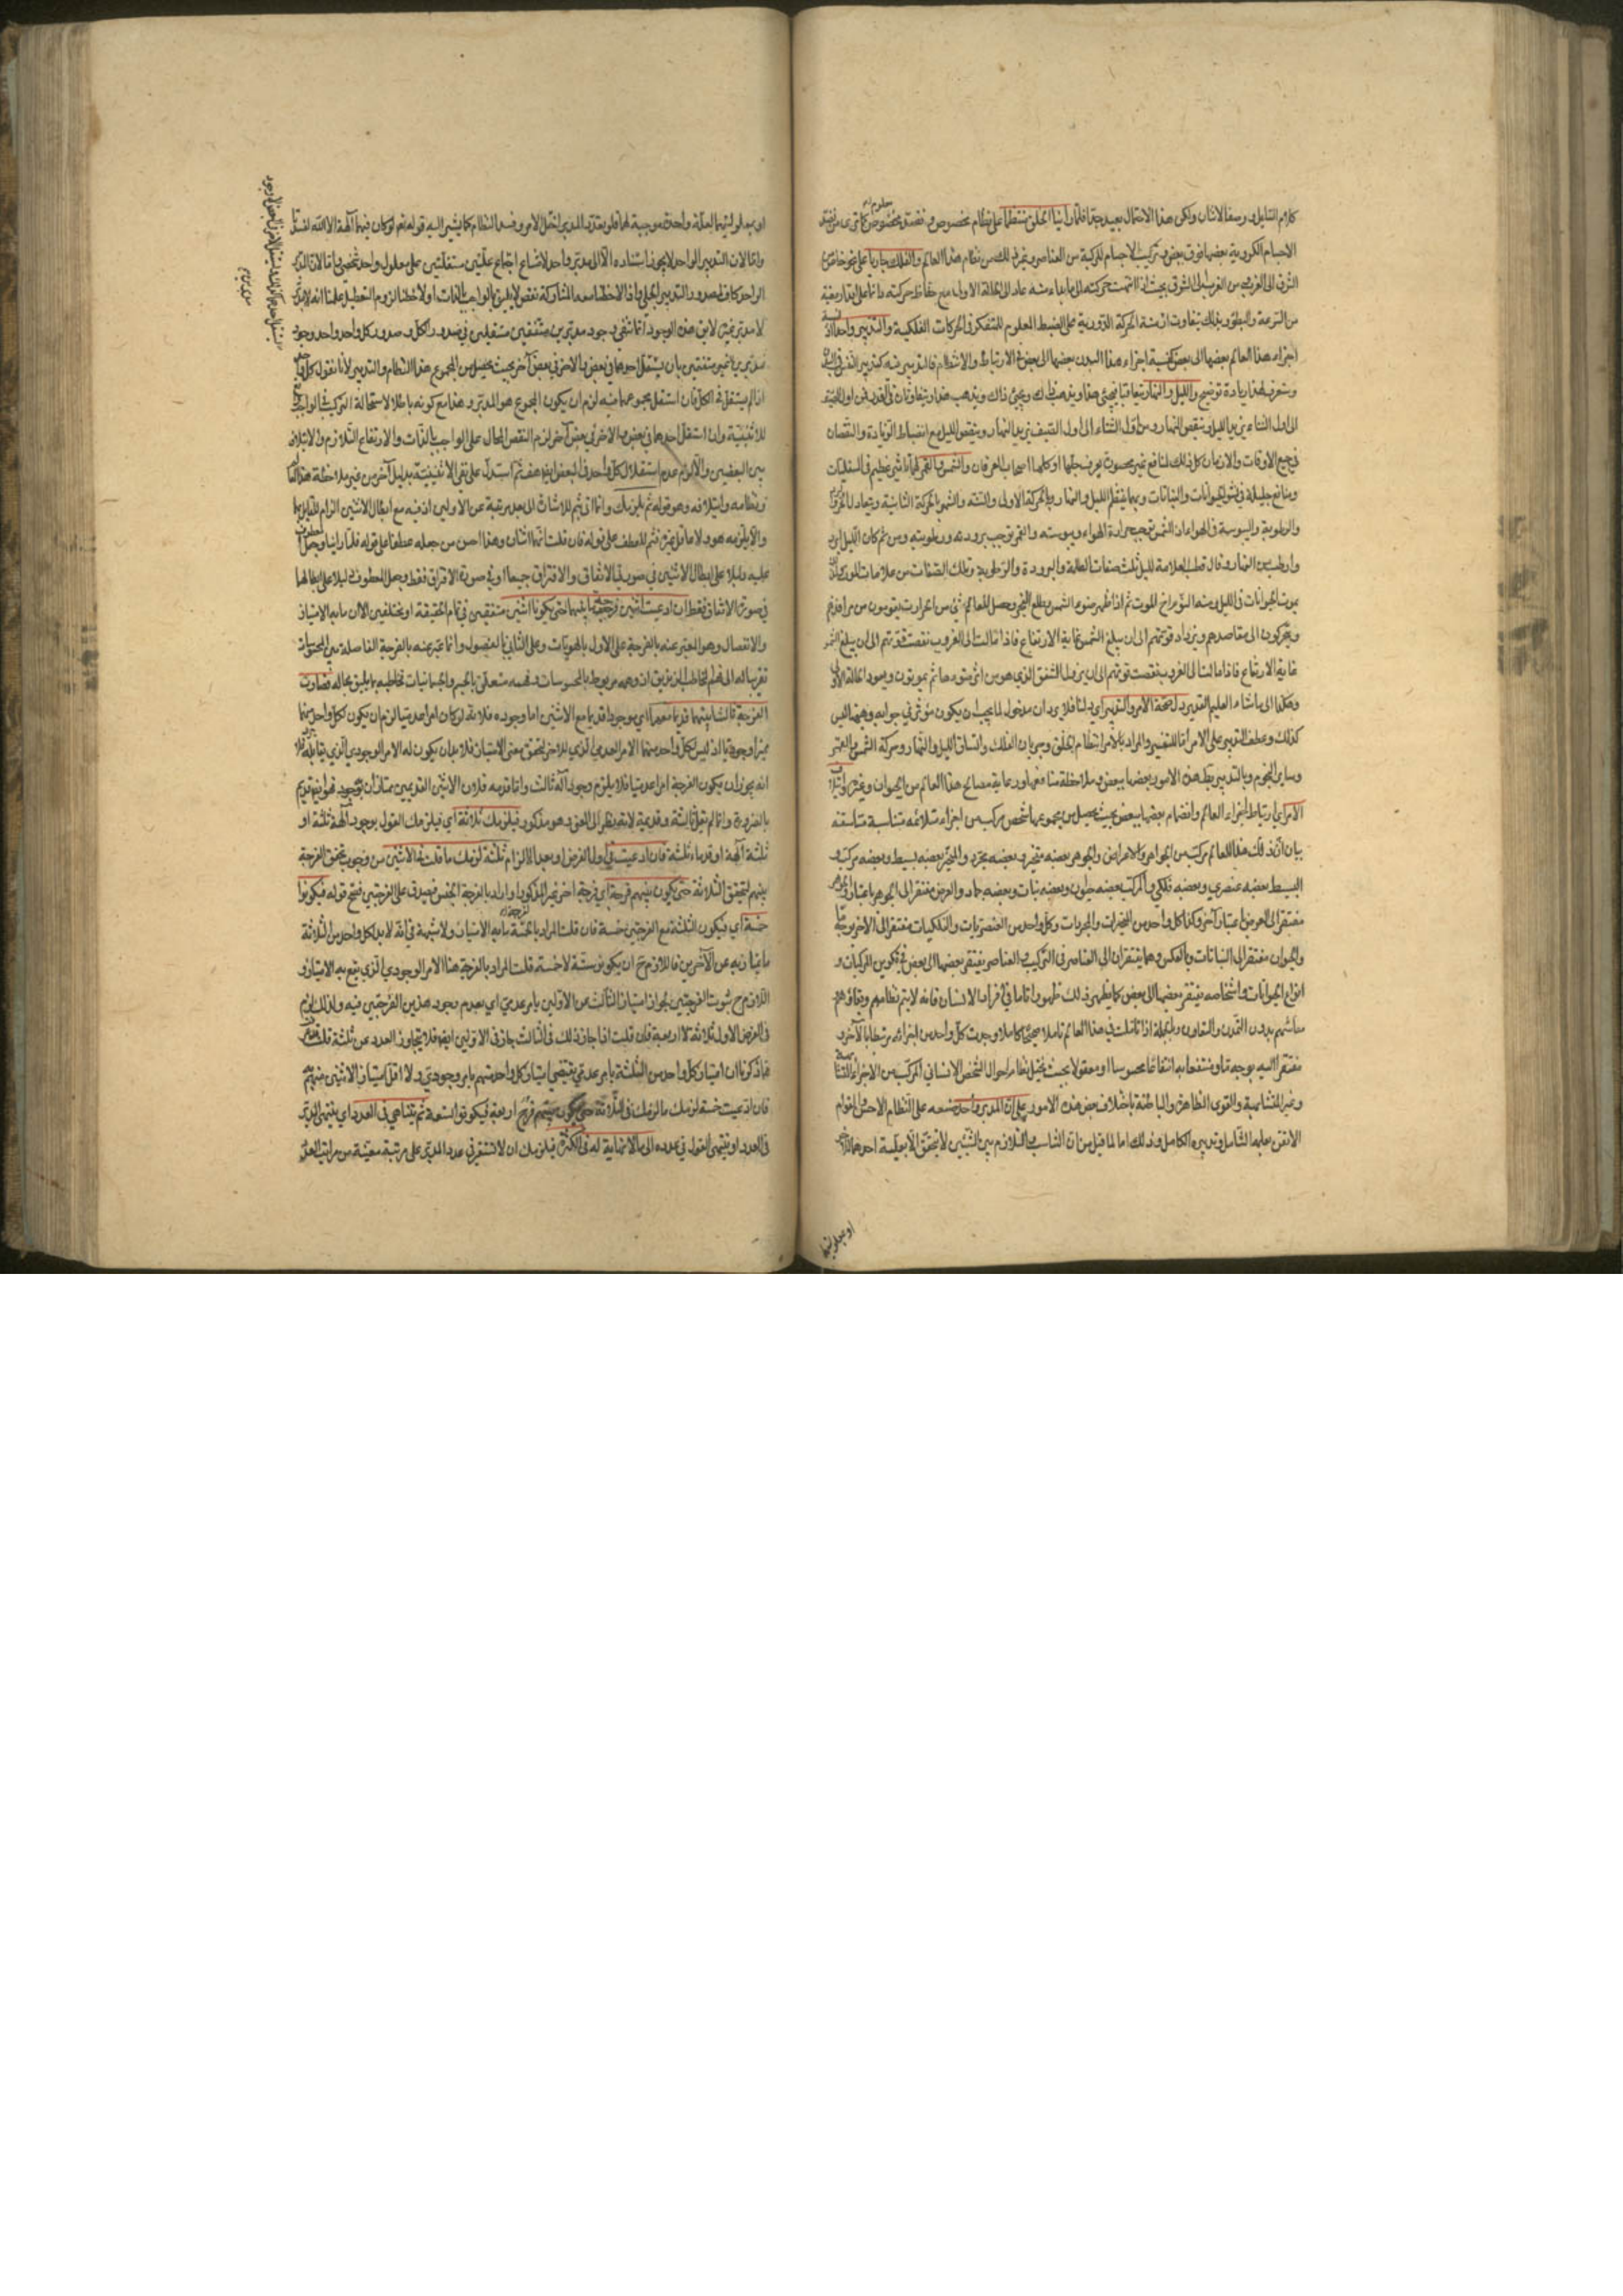 كلام القائل ووصف الاثنان ولكن هذا الاحتمال بعيد جدا فلما رأينا الخلق منتظما على نظام مخصوص و مخصوص كما ترى من
الاجسام الكروية بعضها فوق بعض وتركيب الاجسام المركبة من العناصر وغير ذلك من نظام هذا العالم والفلك جاريا على نحو خاص من
الشرق الى الغرب من الغرب الى الشرق بحيث اذا انتهت حركته الى ما بدأ منه عاد الى الحالة الاولى مع حفاظ حركته دائما على
من السرعة والبطؤ وبذلك يتفاوت ازمنة الحركة الدورية على الضبط المعلوم للمتفكر في الحركات الفلكية والتدبير واحدا
اجزاء هذا العالم بعضها الى بعض كنسبة اجزاء هذا البدن بعضها الى بعض في الارتباط والانتظام فالتدبير فيه كتدبير النفس في البدن
وستعرف لهذا زيادة توضيح والليل والنهار يتعاقبا فيجيئ هذا ويذهب ذلك ويجيئ ذاك ويذهب هذا ويتفاوتان في
الى اول الشتاء يزيد الليل وينقص النهار ومن اول الشتاء الى اول الصيف يزيد النهار وينقص الليل مع انضباط الزيادة والنقصان
في جميع الاوقات والازمان كل ذلك لمنافع غير محصورة يعرف جلها او كلها اصحاب العرفان والشمس والقمر لهما تاثير عظيم في السفليات
ومنافع جليلة في نشو الحيوانات والنباتات وبهما ينتظم الليل والنهار بالحركة الاولى والسنة والشهر بالحركة الثانية ويتعادل
والرطوبة واليبوسة في الهواء اذ الشمس توجب حرارة الهواء ويبوسته والقمر توجب برودته ورطوبته ومن ثم كان الليل ابرد
وارطب من النهار وقال قطب العلامة لليل ثلث صفات الظلمة والبرودة والرطوبة وتلك الصفات من علامات الموت
يموت الحيوانات في الليل ومنه النوم اخ الموت ثم اذا ظهر ضوء الشمس وطلع الفجر وحصل للعالم شيء من الحرارة يقومون من مراقدهم
ويتحركون الى مقاصدهم ويزداد قوتهم الى ان يبلغ الشمس غاية الارتفاع فاذا مالت الى الغروب نقصت قوتهم الى ان يبلغ
غاية الارتفاع فاذا مالت الى الغروب نقصت قوتهم الى ان يزول الشفق الذي هو من اثر شعاعها ثم يموتون ويعود الحالة الاولى
وهكذا الى ما شاء العليم القدير دل صحة الامر والتدبير اي دلنا فلا يرد ان مدخول لما يجب ان يكون مؤثر في جوابه وههنا ليس
كذلك وعطف التدبير على الامر اما للتفسير والمراد بالامر انتظام الخلق وجريان الفلك واتساق الليل والنهار وحركة الشمس والقمر
وساير النجوم وبالتدبير ربط هذه الامور بعضها ببعض وملاحظة منافعها ورعاية مصالح هذا العالم من الحيوان وغيره وايتلاف
الامر اي ارتباط اجزاء العالم وانضمام بعضها ببعض بحيث يحصل من مجموعها شخص مركب من اجزاء متلائمة متناسبة متناسقة
بيان ذلك ان هذا العالم مركب من الجواهر والاعراض والجوهر بعضه متحيز وبعضه مجرد والمتحيز بعضه بسيط وبعضه مركب و
البسيط بعضه عنصري وبعضه فلكي والمركب بعضه حيوان وبعضه نبات وبعضه جماد والعرض مفتقر الى الجوهر باعتبار والجوهر
مفتقر الى العرض باعتبار آخر وكذا كل واحد من المتحيزات والمجردات وكل واحد من العنصريات والفلكيات مفتقر الى الآخر بوجه ما
والحيوان مفتقر الى النباتات وبالعكس وهما يفتقران الى العناصر في التركيب والعناصر يفتقر بعضها الى بعض في تكوين المركبات و
انواع الحيوانات واشخاصه يفتقر بعضها الى بعض كما يظهر ذلك ظهورا تاما في افراد الانسان فانه لا يتم نظامهم وبقاؤهم
معاشهم بدون التمدن والتعاون وبالجملة اذا تاملت في هذا العالم تاملا صحيحا كاملا وجدت كل واحد من اجزائه مرتبطا بالآخر و
مفتقرا اليه بوجه ما ومنتفعا به انتفاعا محسوسا او معقولا بحيث يختل نظام احوال الشخص الانساني المركب من الاجزاء
وغير المتشابهة والقوى الظاهرة والباطنة باختلاف بعض هذه الامور على ان المدبر واحد صنعه على النظام الاحسن والقوام
الاتقن بعلمه الشامل وتدبيره الكامل وذلك اما لما قيل من ان التناسب والتلازم بين الشيئين لا يتحقق الا بعلية احدهما للآخر
او بمعلوليتهما
او بمعلوليتهما لعلة واحدة موجبة لهما فلو تعدد المدبر لاختل الامر وفسد النظام كما يشير اليه قوله تعالى لو كان فيهما آلهة الا الله لفسدتا
واما لان التدبير الواحد لا يجوز استناده الا الى مدبر واحد لامتناع اجتماع علتين مستقلتين على معلول واحد شخصي واما لان
الواحد كاف لصدور التدبير الجملي واذا لاحظنا معه المشاركة نقص لا يليق بالواجب بالذات اولا حظنا لزوم التعطيل علمنا انه لا مدبر
لا مدبر غيره لا يق هذه الوجود انما تنفي وجود مدبرين متفقين مستقلين في صدور الكل وصدور كل واحد واحد وجود
مدبرين غير متفقين بان يستقل احدهما في بعض والآخر في بعض آخر بحيث يحصل من المجموع هذا النظام والتدبير لانا نقول كل
اذا لم يستقل في الكل فان استقل مجموعهما فيه لزم ان يكون المجموع هو المدبر وهذا مع كونه باطلا لاستحالة التركيب في الواجب
للاثنينية وان استقل احدهما في بعض والآخر في بعض آخر لزم النقص المحال على الواجب بالذات والارتفاع التلازم والايتلاف
بين البعضين واللازم عدم استقلال كل واحد في البعض ايضا هف ثم استدل على نفي الاثنينية بدليل آخر من غير ملاحظة هذا العالم
ونظامه وايتلافه وهو قوله ثم يلزمك وانما اتى بثم للاشارة الى بعد مرتبته عن الاولين اذ فيه مع ابطال الاثنين الزام للقائل بهما
والا يلزمه هو ولا ما قل غيره فثم للعطف على قوله فان قلت انهما اثنان وهذا احسن من جعله عطفا على قوله فلما راينا وجعل
عليه دليلا على ابطال الاثنين في صورتي الاتفاق والافتراق جميعا او في صورة الافتراق فقط وجعل المعطوف دليلا على ابطالهما
في صورة الاتفاق فقط ان ادعيت اثنين فرجة ما بينهما حتى يكونا اثنين متفقين في تمام الحقيقة او مختلفين الا ان ما به الامتياز
والانفصال وهو المعبر عنه بالفرجة على الاول بالهويات وعلى الثاني بالفصول وانما عبر عنه بالفرجة الفاصلة بين المحسوسات
تقريبا له الى فهم المخاطب الزنديق اذ وهمه مربوط بالمحسوسات وفهمه متعلق بالجسم والجسمانيات فخاطبه بما يليق بحاله فصارت
الفرجة ثالثا بينهما قديما معهما اي موجودا قديما مع الاثنين اما وجوده فلانه لو كان امرا عدميا لزم ان يكون لكل واحد منهما
مميزا وجوديا اذ ليس لكل واحد منهما الامر العدمي الذي للآخر لتحقق معنى الامتياز فلا بد ان يكون له الامر الوجودي الذي يقابله
انه يجوز ان يكون الفرجة امرا عدميا فلا يلزم وجود آله ثالث واما قدمه فلان الاثنين القديمين ممتازان بوجود فهو ايضا قديم
بالضرورة وانما لم يقل ثالثة وقديمة لانه نظر الى المعنى وهو مذكور فيلزمك ثلاثة اي فيلزمك القول بوجود آلهة ثلثة او
ثلثة آلهة او قدماء ثلثة فان ادعيت في اول الفرض او بعد الالزام ثلثة لزمك ما قلت في الاثنين من وجوب تحقق الفرجة
بينهم لتحقق الثلاثة حتى يكون بينهم فرجة اي فرجة اخرى غير المذكور او اراد بالفرجة الجنس فيصدق على الفرجتين فصح قوله فيكونوا
خمسة اي فيكون الثلثة مع الفرجتين خمسة فان قلت المراد بالخمسة ما به الامتياز ولا شبهة في انه لا بد لكل واحد من الثلاثة
ما يمتاز به عن الآخرين فاللازم ح ان يكونوا ستة لا خمسة قلت المراد بالفرجة هنا الامر الوجودي الذي يقع به الامتياز و
اللازم ح ثبوت الفرجتين لجواز امتياز الثالث عن الاولين بامر عدمي اي بعدم وجود هذين الفرجتين فيه ولذلك لزم
في الفرض الاول ثلاثة لا اربعة فان قلت اذا جاز ذلك في الثالث جاز في الاولين ايضا فلا يتجاوز العدد عن ثلثة قلت
قد ذكرنا ان امتياز كل واحد من الثلثة بامر عدمي يقتضي امتياز كل واحد منهم بامر وجودي ولا اقل امتياز الاثنين منهم
فان ادعيت خمسة لزمك ما لزمك في الثلاثة حتى يكون بينهم فرج اربعة فيكونوا تسعة ثم يتناهى في العدد اي ينتهي المدبر
في العدد او ينتهي القول في عدده الى ما لا نهاية له في الكثرة فيلزمك ان لا تستقر في عدد المدبر على مرتبة معينة من مراتب العدد